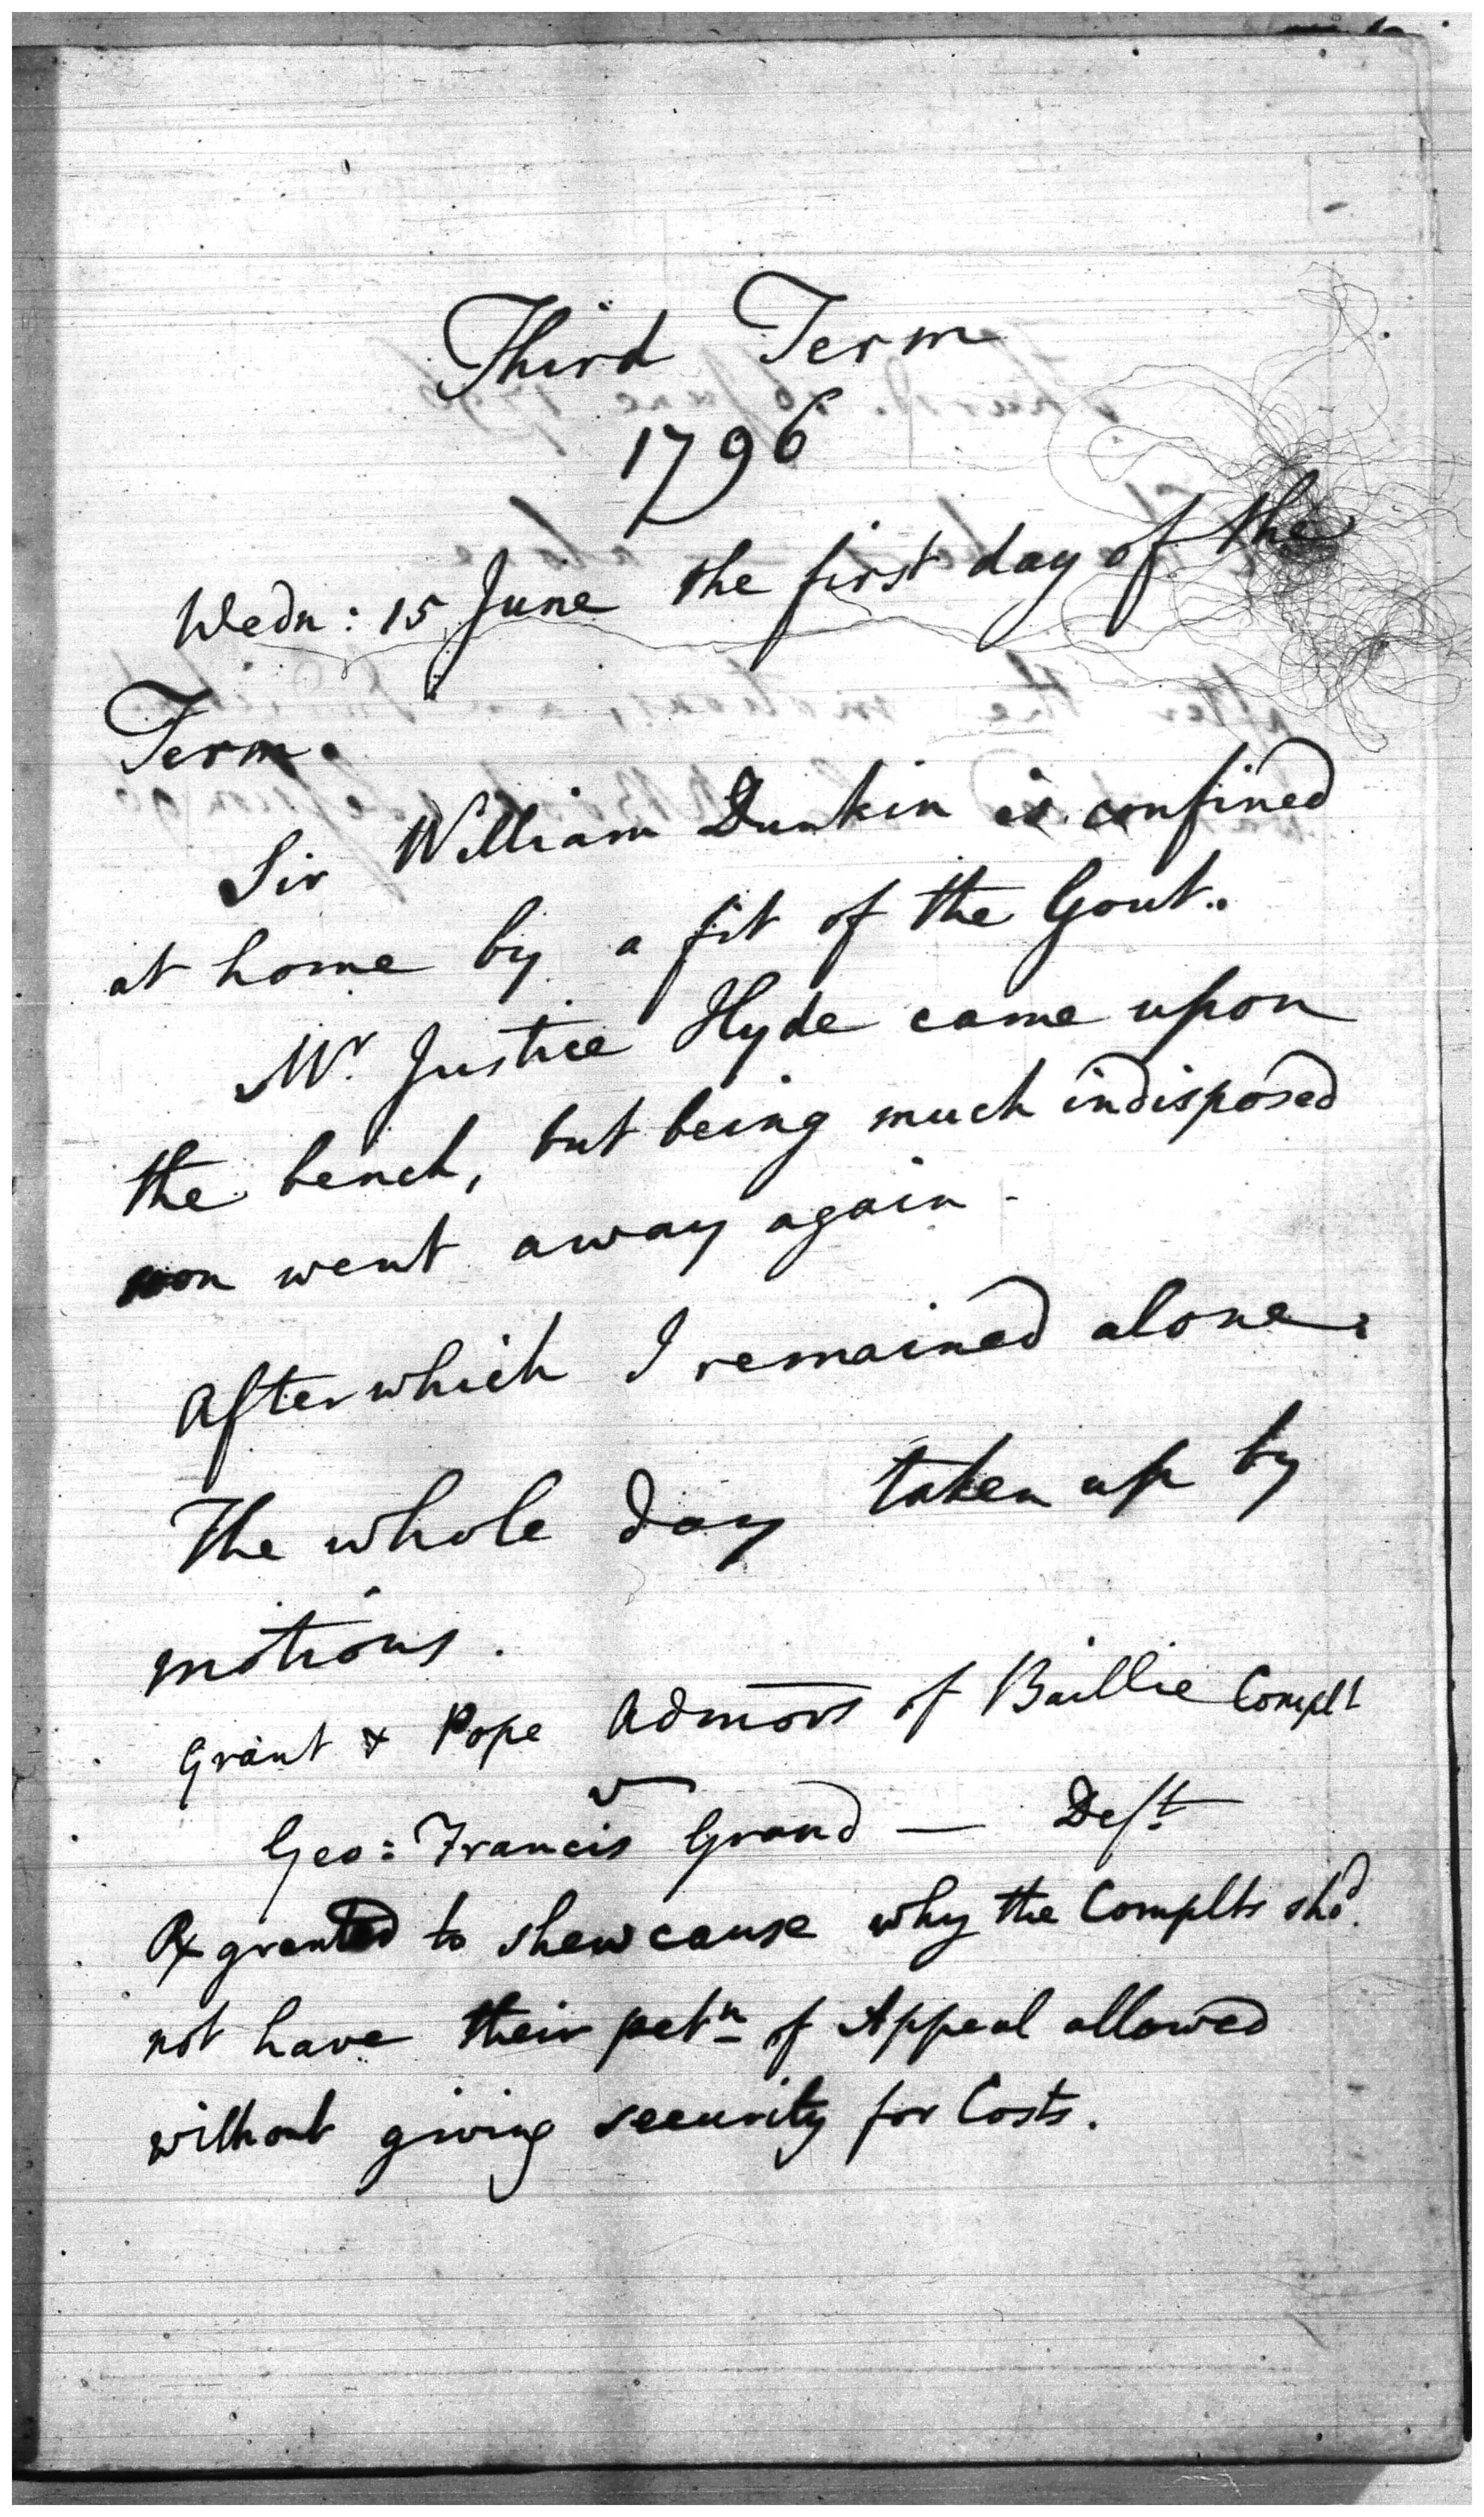 Third Term
1796
Wedn: 15 June the first day of the
Term.
Sir William Dunkin is confined
at home by a fit of the Gout.
Mr. Justice Hyde came upon
the bench, but being much indisposed
soon went away again.
After which I remained alone.
The whole day taken up by
motions.
Grant & Pope Admors of Baillie Complt
v
Geo: Francis Grand — Deft
granted to shew cause why the Complts shd.
not have their petn of Appeal allowed
without giving security for Costs.